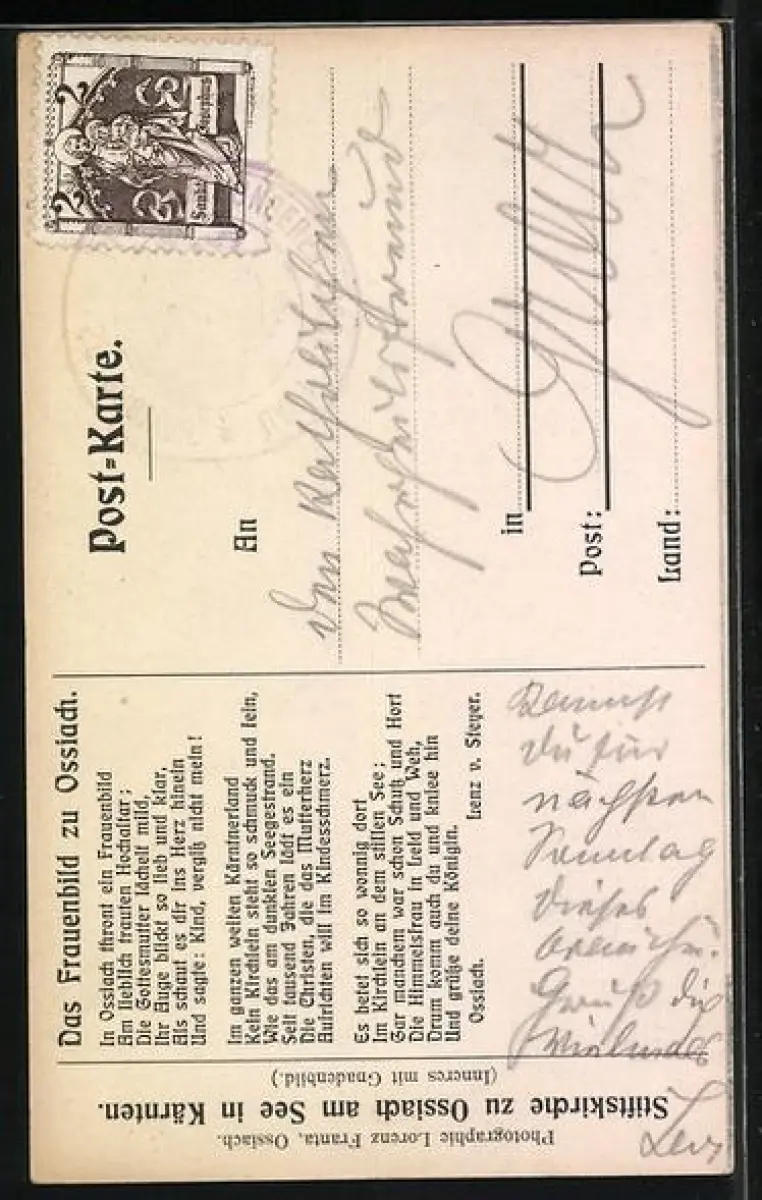 Das Frauenbild zu Ossiach.
In Ossiach thront ein Frauenbild
Am lieblich trauten Hochaltar;
Die Gottesmutter lächelt mild,
Ihr Auge blickt so lieb und klar,
Als schaut es dir ins Herz hinein
Und sagte: Kind, vergiß nicht mein!
Im ganzen weiten Kärntnerland
Kein Kirchlein steht so schmuck und fein,
Wie das am dunklen Seegestrand.
Seit tausend Jahren lädt es ein
Die Christen, die das Mutterherz
Aufrichten will im Kindesschmerz.
Es betet sich so wonnig dort
Im Kirchlein an dem stillen See;
Gar manchem war schon Schutz und Hort
Die Himmelsfrau in Leid und Weh,
Drum komm auch du und kniee hin
Und grüße deine Königin.
Ossiach. Lenz v. Steyer.
Kannst
Du für
nächsten
Sonntag
dieses
Gruß die
Post-Karte.
2 2
Sankt Josephus
An
Den Katholischen
in
Post:
Land:
Stiftskirche zu Ossiach am See in Kärnten.
(Inneres mit Gnadenbild.)
Photographie Lorenz Franta, Ossiach.